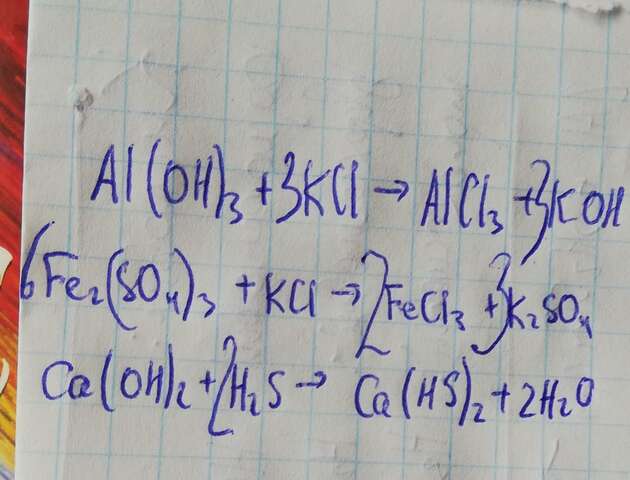 Al(OH)₃ + 3KCl → AlCl₃ + 3KOH
6Fe₂(SO₄)₃ + KCl → 2FeCl₃ + 3K₂SO₄
Ca(OH)₂ + 2H₂S → Ca(HS)₂ + 2H₂O